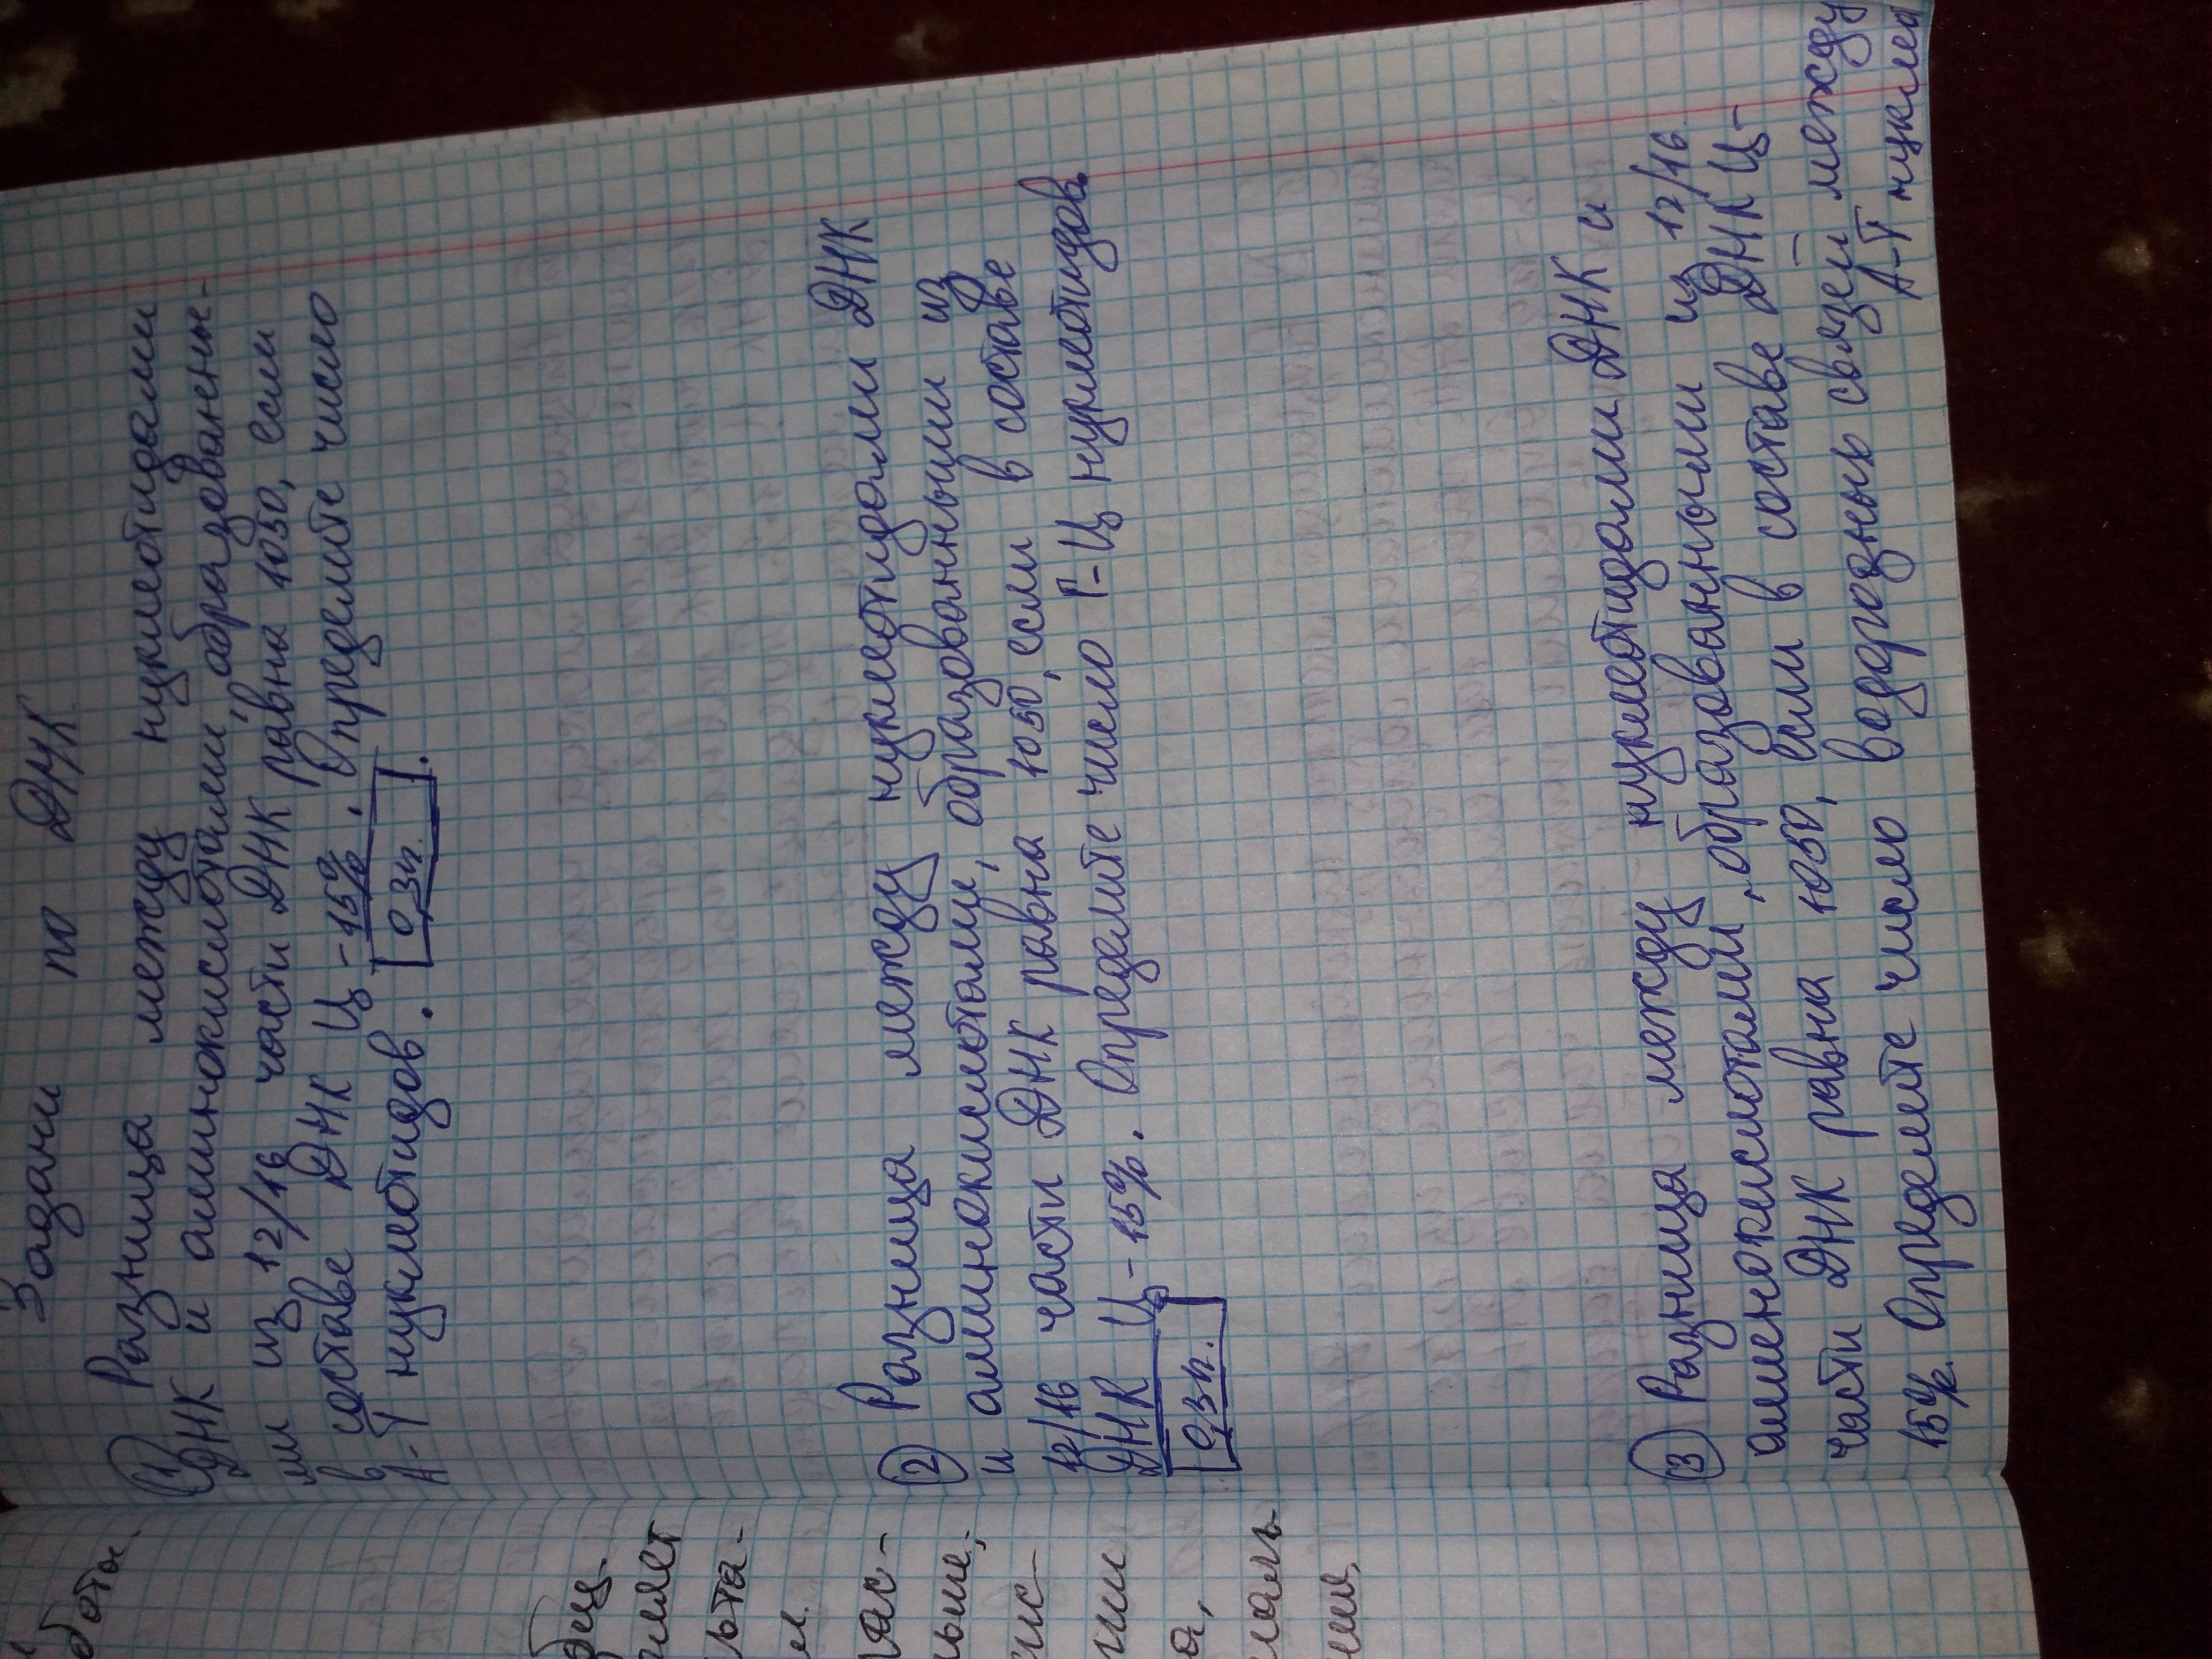 Задани по ДНК
① Разница между нуклеотидами
ДНК и аминокислотами, образованны-
ми из 12/16 части ДНК равна 1050, если
в составе ДНК Ц-15%. Определите число
А-Т нуклеотидов. 0,3п.
② Разница между нуклеотидами ДНК
и аминокислотами, образованными из
12/16 части ДНК равна 1050, если в составе
ДНК Ц-15%. Определите число Г-Ц нуклеотидов.
0,3п.
③ Разница между нуклеотидами ДНК и
аминокислотами, образованными из 12/16
части ДНК равна 1050, если в составе ДНК Ц-
15%. Определите число водородных связей между
А-Т нуклео
бота.
ота-
ьше,